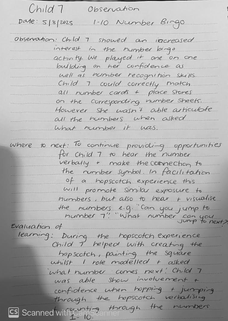 Child 7 Observation
Date 5/3/2025 1-10 Number Bingo
Observation: Child 7 showed an increased
interest in the number bingo
activity. We played it one on one
building on her confidence as
well as number recognition skills
Child 7 could correctly match
all number cards + place stones
on the corresponding number sheets.
However she wasn't able articulate
all the numbers when asked
What number it was.
Where to next: To continue providing opportunities
for Child 7 to hear the number
verbally + make the connection to
the number symbol. In facilitation
of a hopscotch experience this
will promote similar exposure to
numbers, but also to hear + visualise
the numbers e.g. "Can you jump to
number 7" "What number can you
jump to next?"
Evaluation of
learning: During the hopscotch experience
Child 7 helped with creating the
hopscotch, painting the square
whilst I role modelled + asked
what number comes next. Child 7
was able show involvement +
confidence when hopping + jumping
through the hopscotch verbalising
through the numbers
1-10.
CS Scanned with